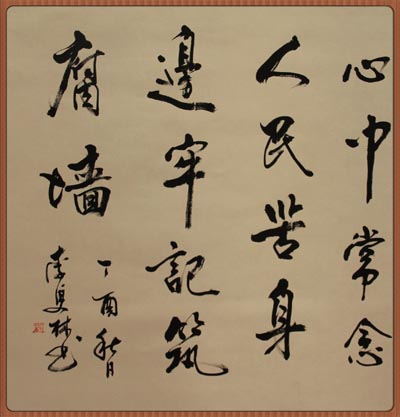 心中常念
人民苦身
邊牢記筑
腐墙
丁酉秋日
李林书